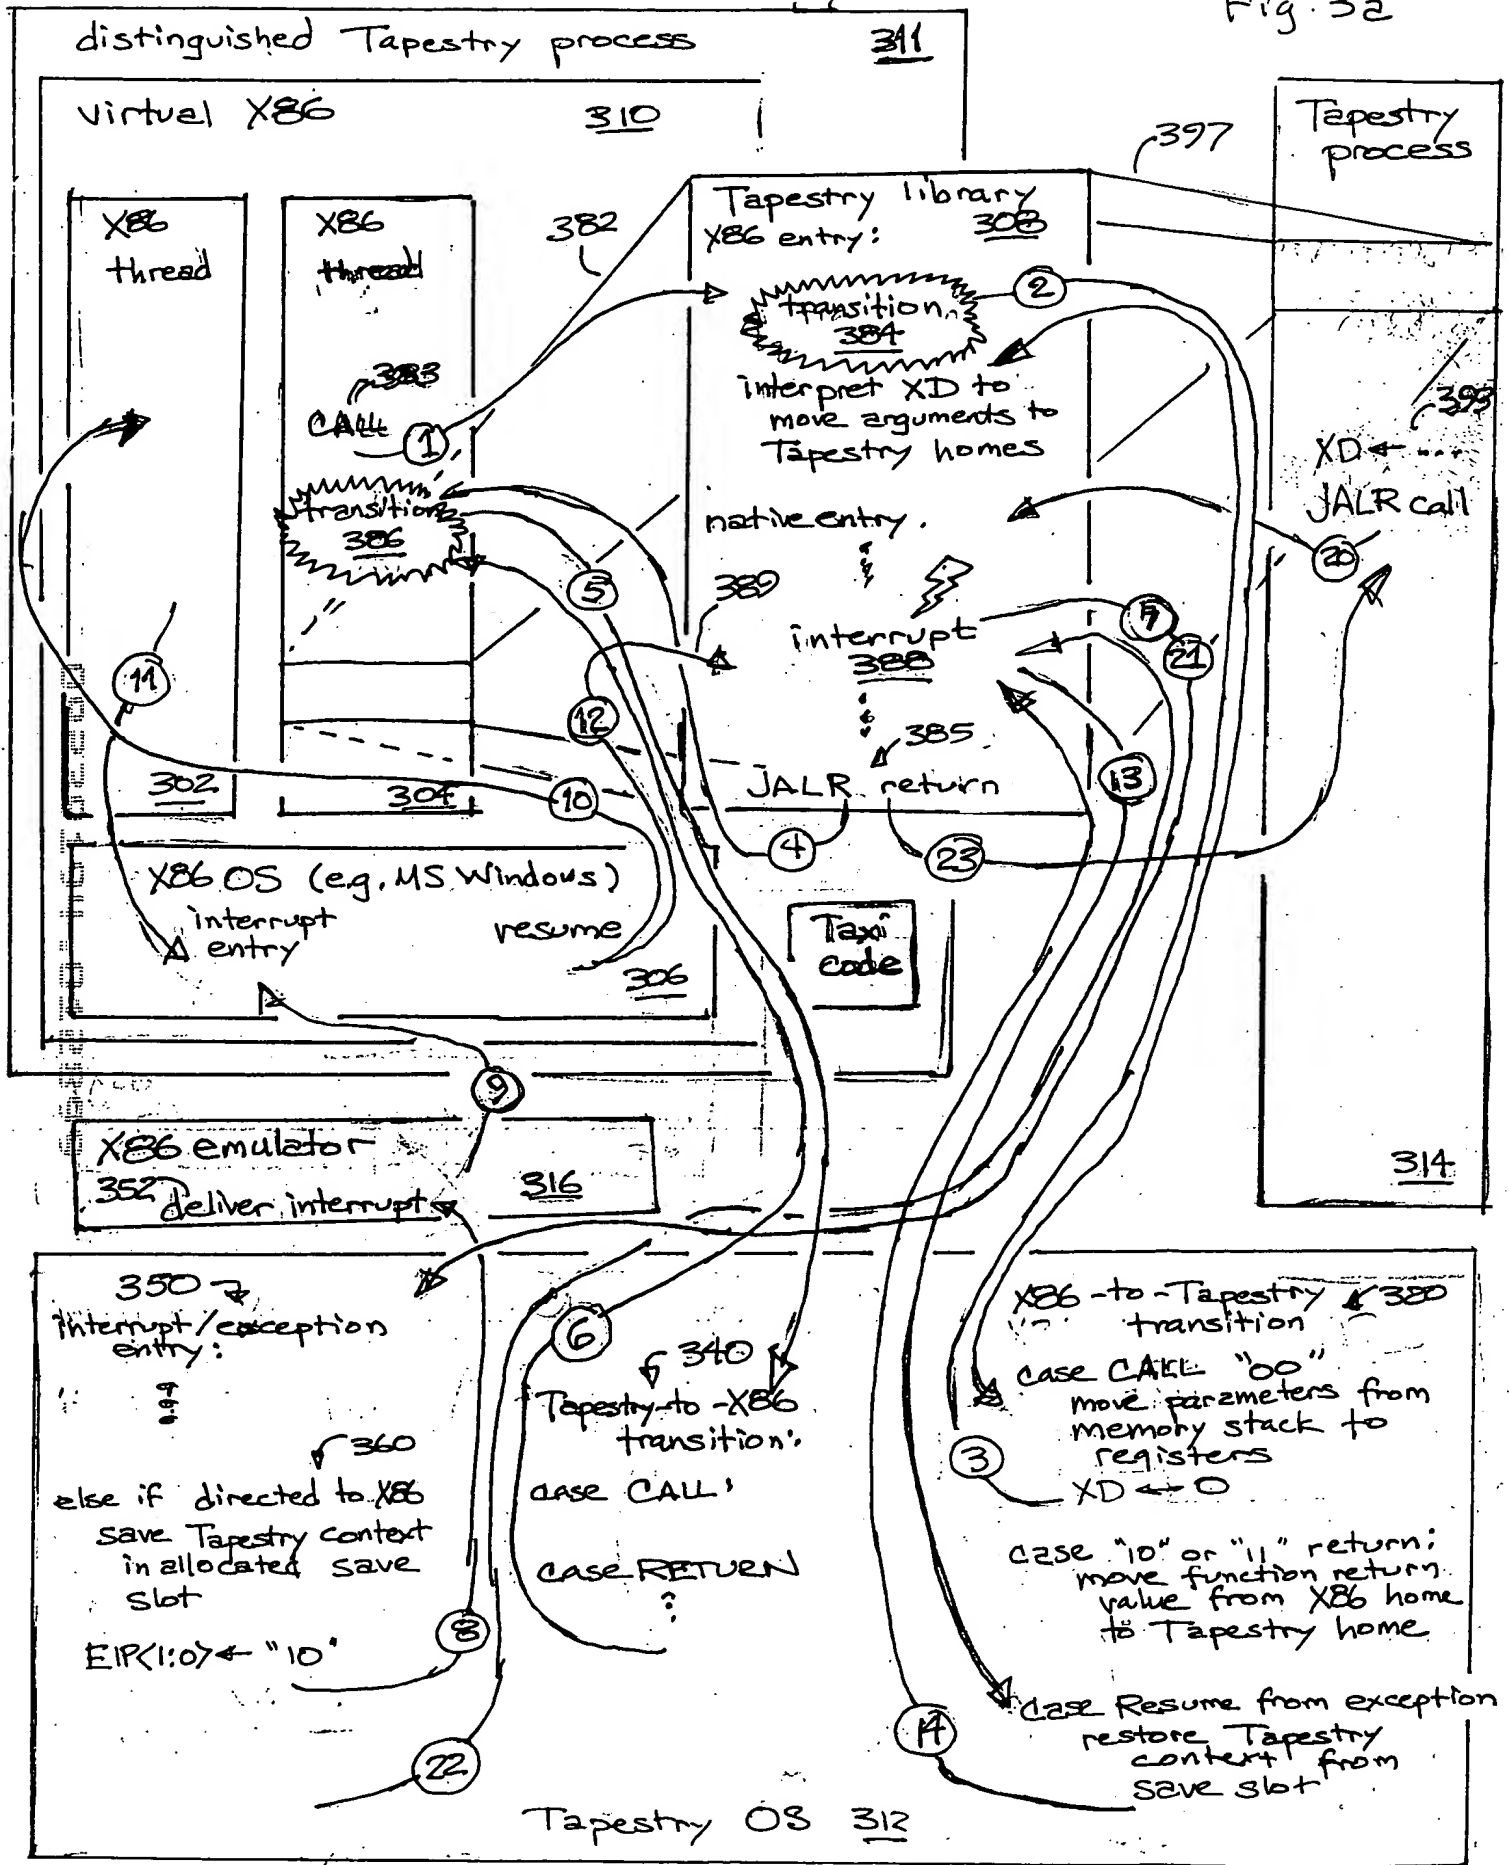 Fig. 3a
distinguished Tapestry process 311
virtual X86 310
X86
thread
302
X86
thread
383
CALL
1
transition
386
304
382
Tapestry library
308
X86 entry:
transition
384
2
interpret XD to
move arguments to
Tapestry homes
native entry.
389
interrupt
388
385
JALR return
397
Tapestry
process
393
XD ← ...
JALR call
20
314
5
21
11
12
10
13
4
23
X86 OS (e.g. MS Windows)
interrupt
entry
resume
306
Taxi
code
9
X86 emulator
352 deliver interrupt
316
350
interrupt/exception
entry:
360
else if directed to X86
save Tapestry context
in allocated save
slot
EIP<1:0> ← "10"
8
22
6
340
Tapestry-to-X86
transition:
case CALL:
case RETURN
X86-to-Tapestry 320
transition
case CALL "00"
move parameters from
memory stack to
registers
3
XD ← 0
case "10" or "11" return:
move function return
value from X86 home
to Tapestry home
case Resume from exception
restore Tapestry
context from
save slot
14
Tapestry OS 312